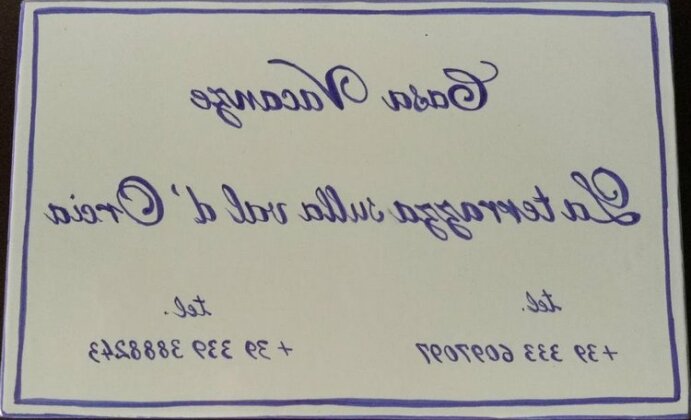 Casa Vacanze
La terrazza sulla val d'Orcia
tel. tel.
+39 333 6097097 +39 339 3888243